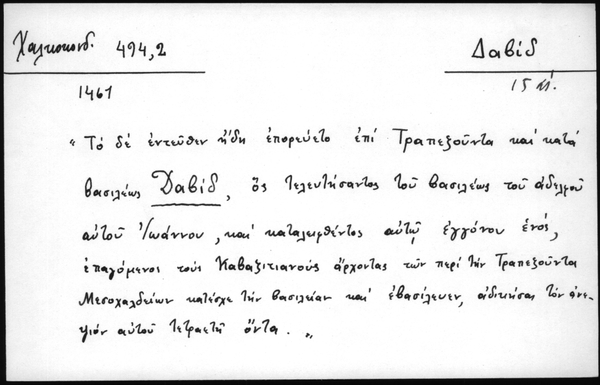 Χαλκοκονδ. 494,2
Δαβίδ
1461
15 αἰ.
" Τὸ δὲ ἐντεῦθεν ἤδη ἐπορεύετο ἐπὶ Τραπεζοῦντα καὶ κατὰ
βασιλέως Δαβίδ, ὃς τελευτήσαντος τοῦ βασιλέως τοῦ ἀδελφοῦ
αὐτοῦ Ἰωάννου, καὶ καταλειφθέντος αὐτῷ ἐγγόνου ἑνός,
ἐπαγόμενος τοὺς Καβαζιτιανοὺς ἄρχοντας τῶν περὶ τὴν Τραπεζοῦντα
Μεσοχαλδείων κατέσχε τὴν βασιλείαν καὶ ἐβασίλευεν, ἀδικήσας τὸν ἀνε-
ψιὸν αὐτοῦ τετραετῆ ὄντα. "